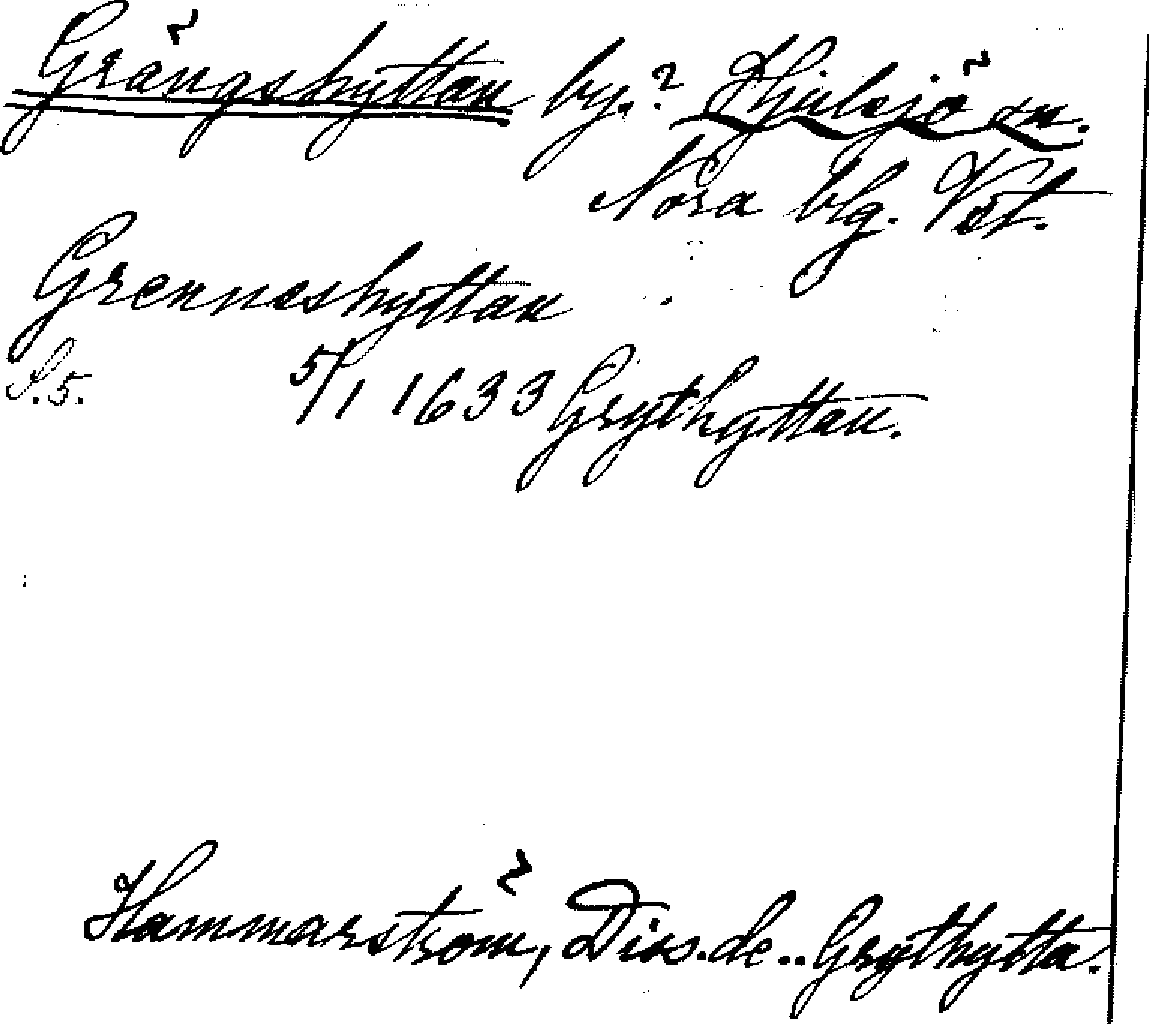 Grängshyttan by.? Hjulsjö sn.
Nora blg. Vstm.
Grenneshyttan
S.5. 5/1 1633 Grythyttan.
Hammarström, Diss. de .. Grythytta.